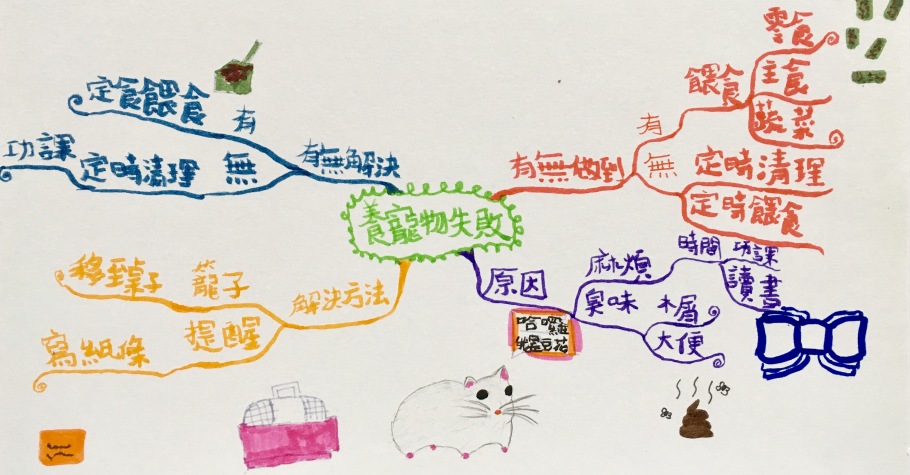 養寵物失敗
有無做到
有
餵食
零食
主食
蔬菜
無
定時清理
定時餵食
原因
麻煩
時間
功課
讀書
臭味
木屑
大便
解決方法
籠子
移到桌子
提醒
寫紙條
有無解決
有
定食餵食
無
定時清理
功課
哈囉
我是豆花